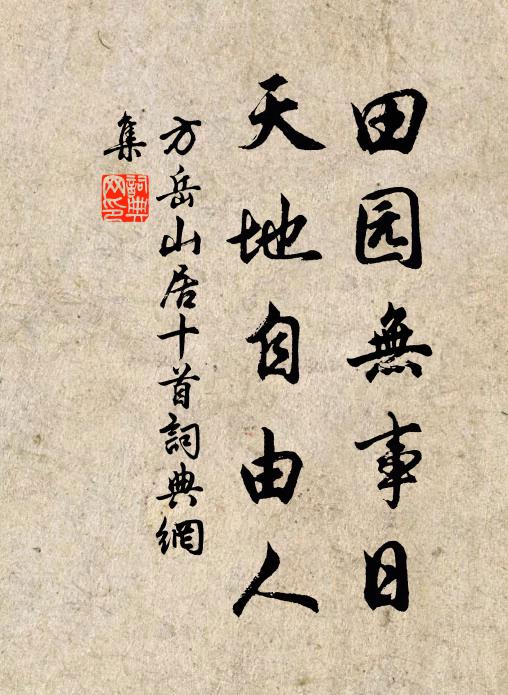 田园無事日
天地自由人
方岳山居十首詞典網
集
詞典
网印